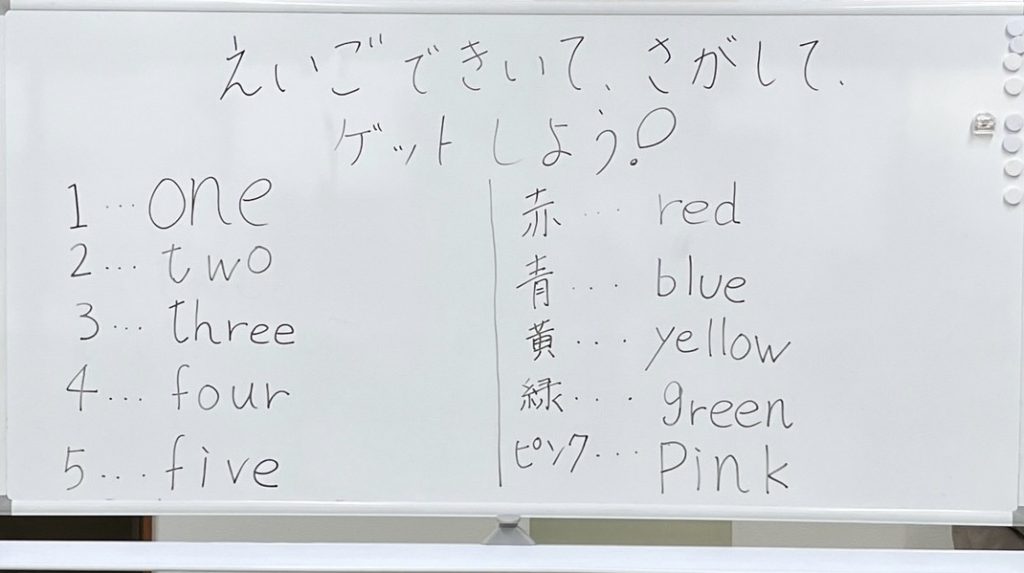 えいごできいて、さがして、
ゲットしよう!
1…one
2…two
3…three
4…four
5…five
赤…red
青…blue
黄…yellow
緑…green
ピンク…Pink